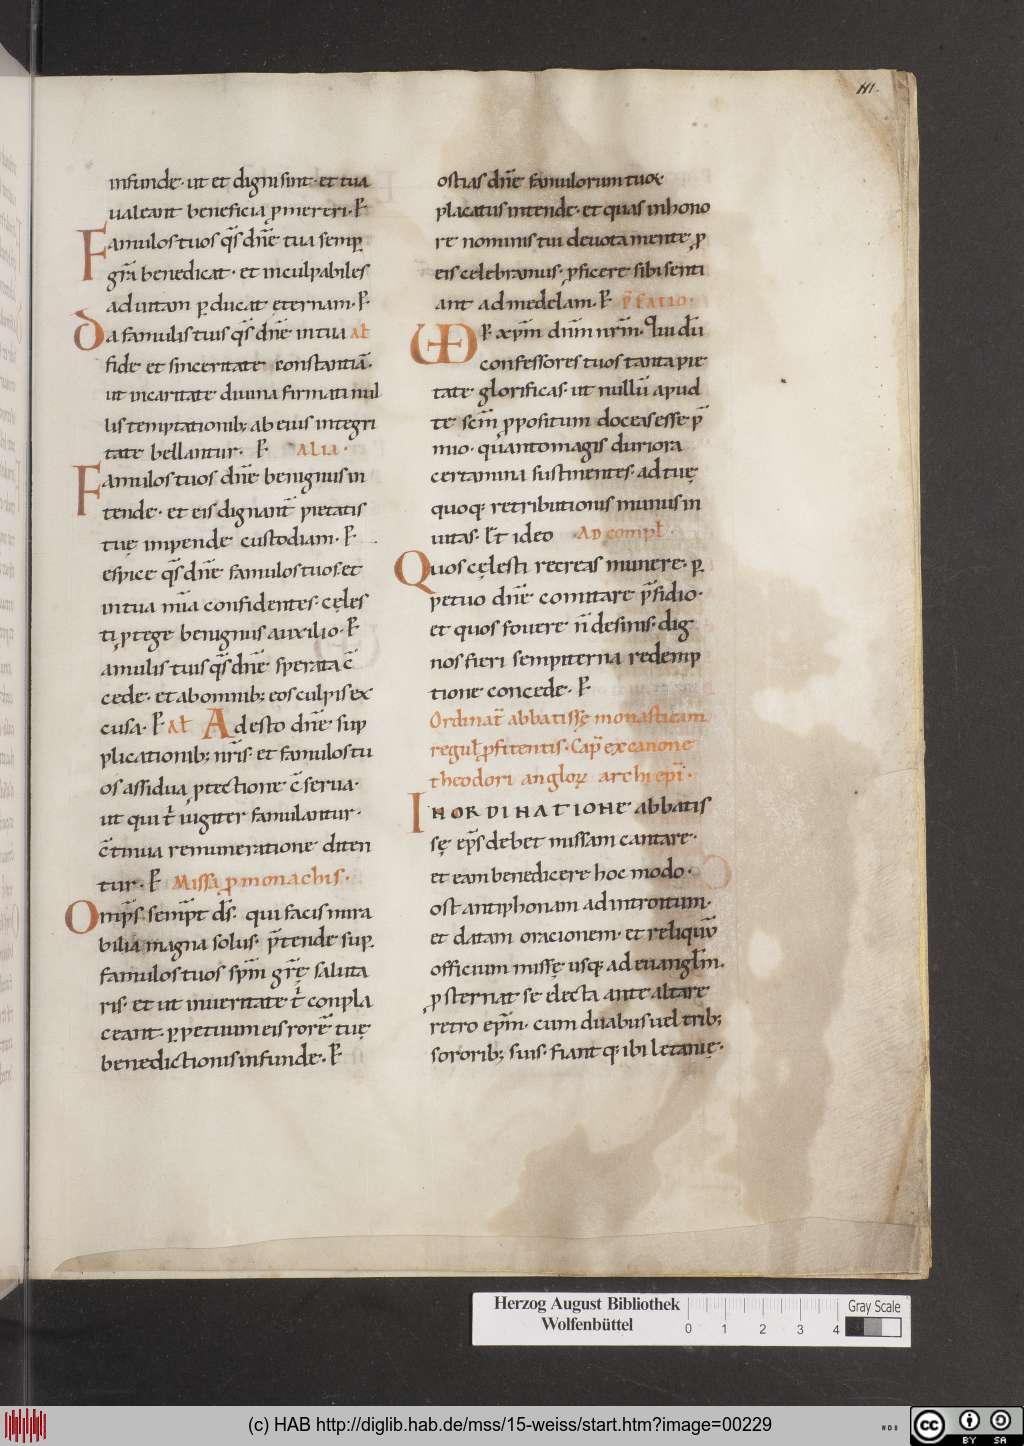 111.
infunde· ut et digni sint· et tua
ualeant beneficia ꝓmereri· ꝑ
Famulos tuos q̄s dn̄e tua semꝑ
gr̄a benedicat· et inculpabiles
ad uitam ꝑducat ęternam· ꝑ
Da famulis tuis q̄s dn̄e in tua al̄
fide et sinceritate constantiā·
ut in caritate diuina firmati nul
lis temptationib; ab eius integri
tate bellantur· ꝑ alia·
Famulos tuos dn̄e benignus in
tende· et eis dignant̄ pietatis
tuę impende custodiam· ꝑ
espice q̄s dn̄e famulos tuos· et
in tua mīa confidentes· cęles
ti ꝓtege benignus auxilio· ꝑ
amulis tuis q̄s dn̄e sperata c̄
cede· et ab omnib; eos culpis ex
cusa· ꝑ al̄ Adesto dn̄e sup
plicationib; nr̄is· et famulos tu
os assidua ꝓtectione c̄serua·
ut qui t̄ iugiter famulantur·
c̄tinua remuneratione diten
tur· ꝑ Missa ꝓ monachis·
Omp̄s semp̄t ds̄· qui facis mira
bilia magna solus· p̄tende suꝑ
famulos tuos sp̄m gr̄ę saluta
ris· et ut in ueritate t̄ conpla
ceant· ꝑpetuum eis rorē tuę
benedictionis infunde· ꝑ
ostias dn̄e famulorum tuoꝝ·
placatus intende· et quas in hono
re nominis tui deuota mente ꝓ
eis celebramus· ꝓficere sibi senti
ant ad medelam· ꝑ p̄fatio·
VD ꝑ xp̄m dn̄m nr̄m· Qui dū
confessores tuos tanta pie
tate glorificas· ut nullū apud
te scm̄ ꝓpositum doceas esse p̄
mio· quanto magis duriora
certamina sustinentes· ad tuę
quoq; retributionis munus in
uitas· Et ideo Ad compl̄·
Quos cęlesti recreas munere· ꝑ
petuo dn̄e comitare p̄sidio·
et quos fouere n̄ desinis· dig
nos fieri sempiterna redemp
tione concede· ꝑ
Ordinat̄ abbatissę monasticam
regul̄ ꝓfitentis· Cap̄ ex canone
theodori angloꝝ archiep̄i·
IN ORDINATIONE abbatis
sę ep̄s debet missam cantare·
et eam benedicere hoc modo·
ost antiphonam ad introitum·
et datam oracionem· et reliquū
officium missę usq; ad euanglīm·
ꝓsternat se electa ante altare
retro ep̄m· cum duabus uel trib;
sororib; suis· fiantq; ibi letanię·
Herzog August Bibliothek
Wolfenbüttel
0 1 2 3 4
Gray Scale
(c) HAB http://diglib.hab.de/mss/15-weiss/start.htm?image=00229
cc BY SA